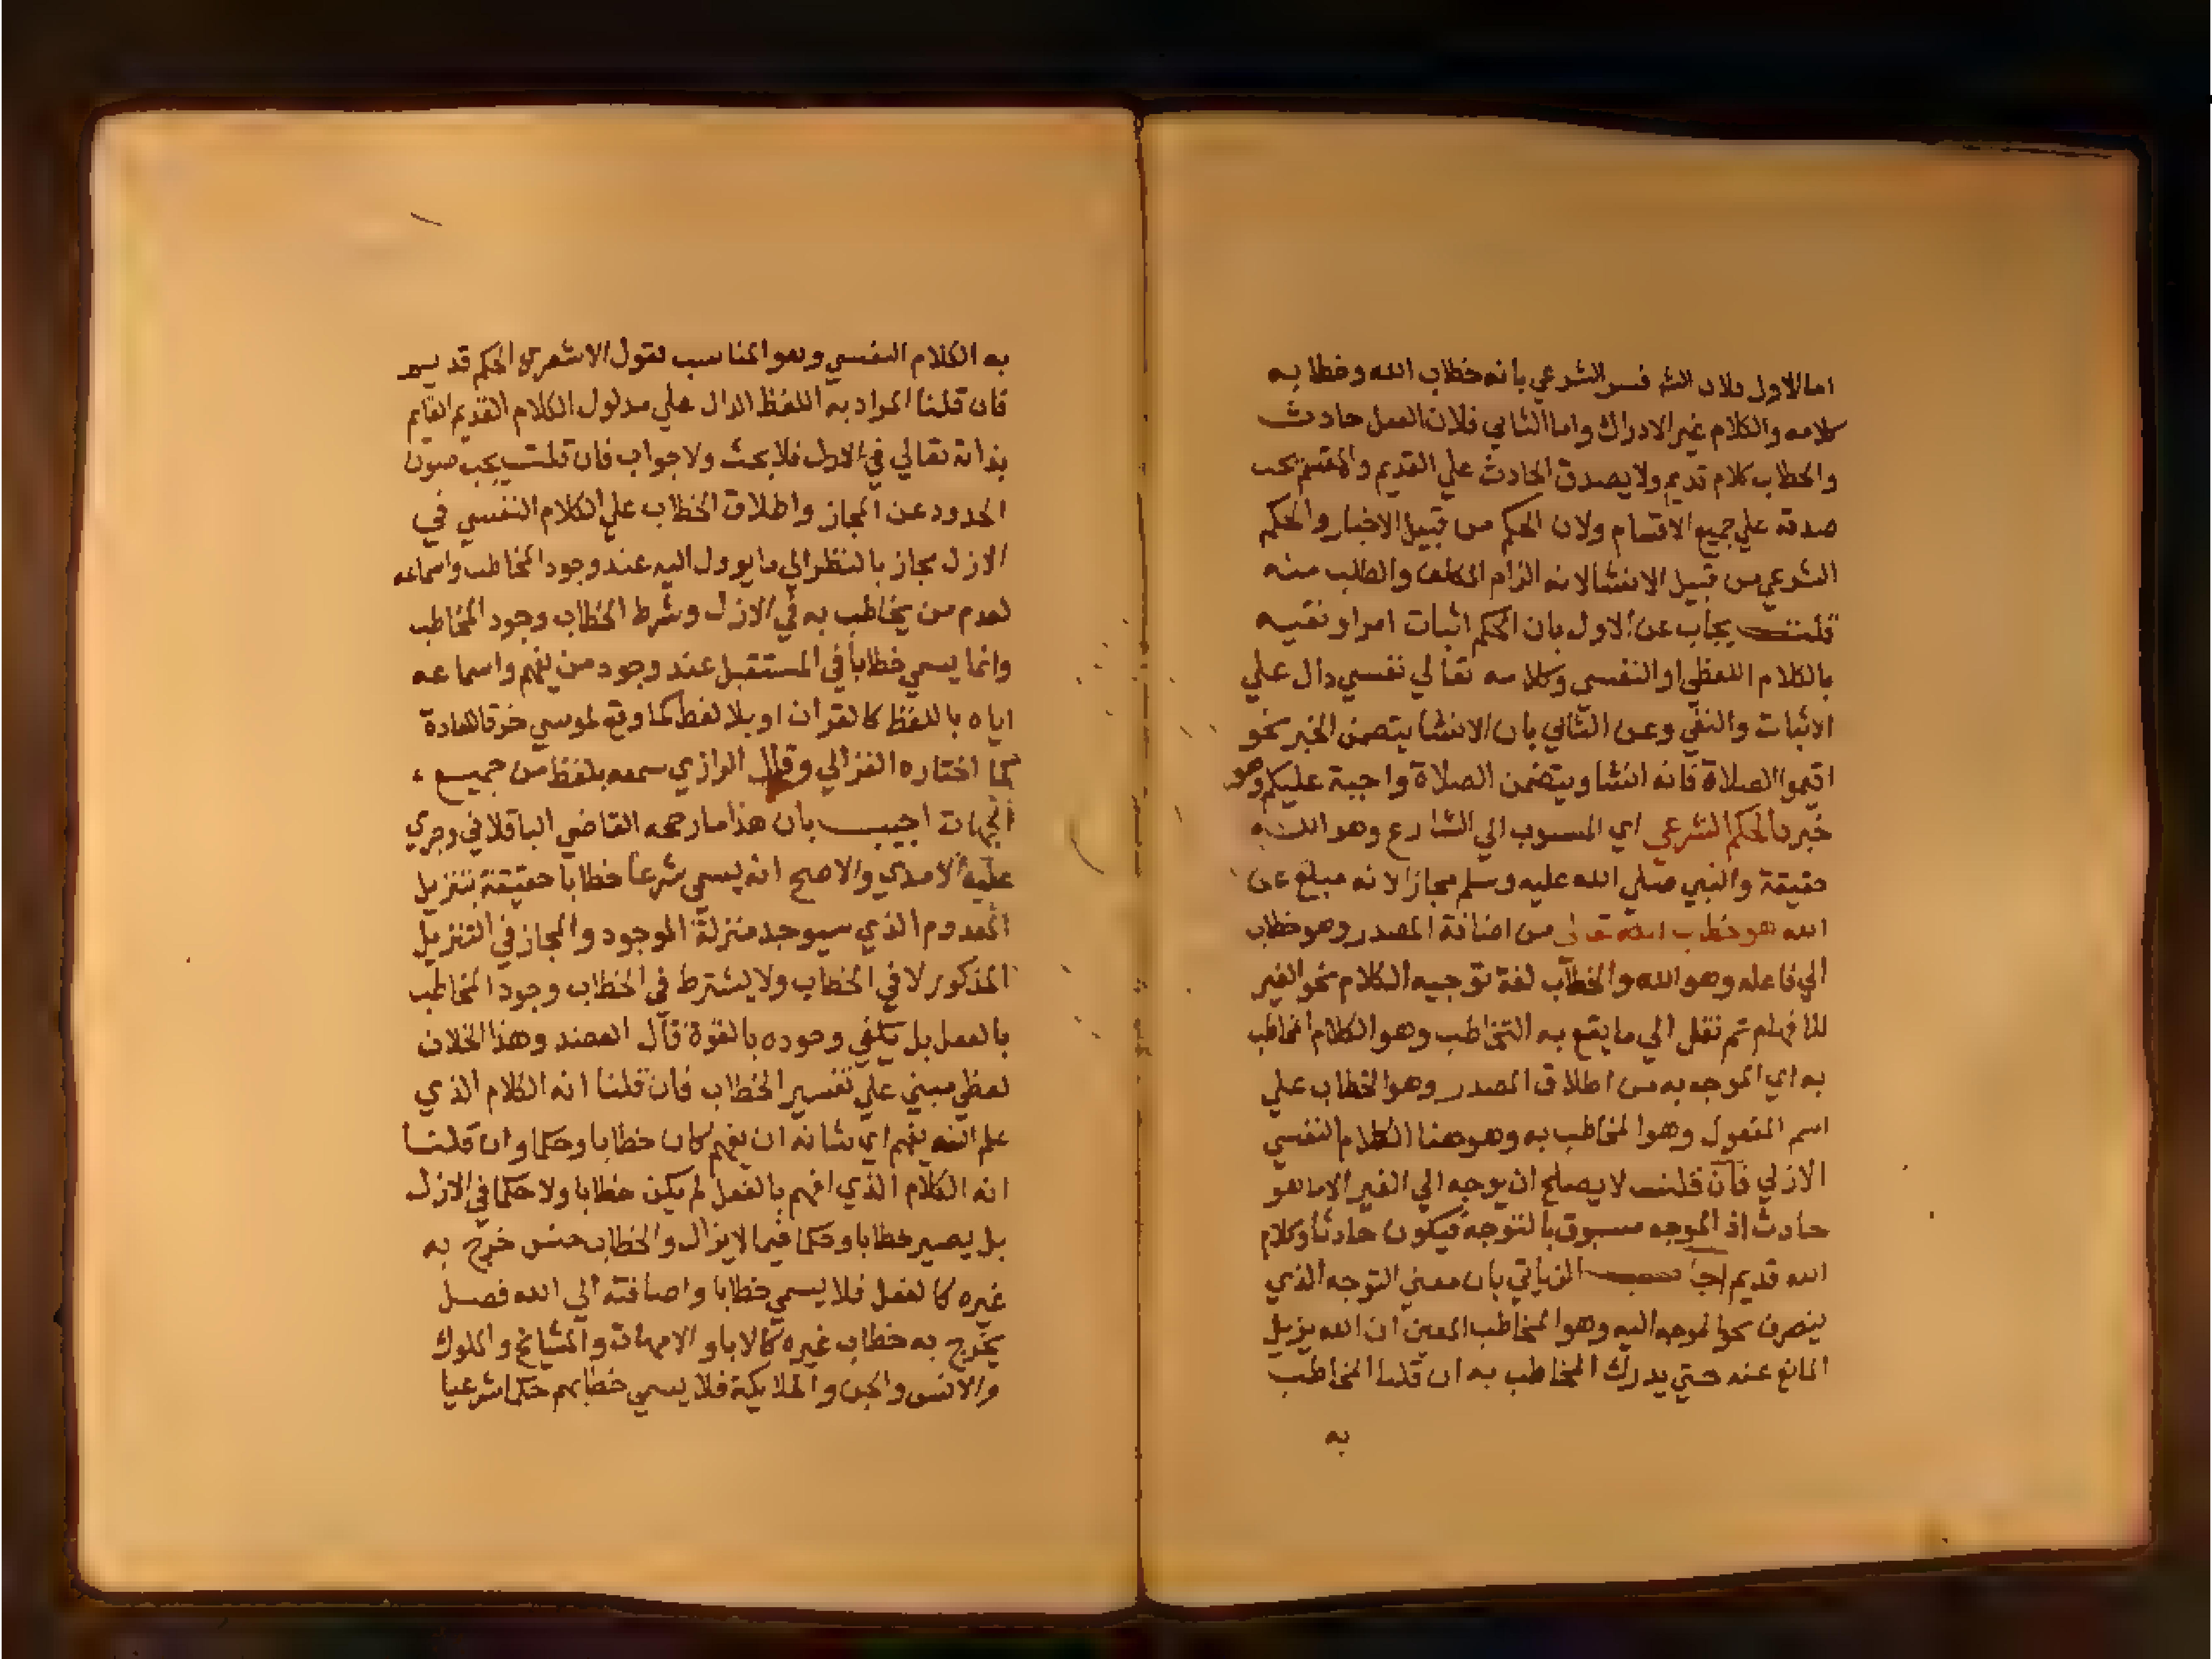 اما الاول فلان الله فسر الشرعي بانه خطاب الله وخطابه
كلامه والكلام غير الادراك واما الثاني فلان الفعل حادث
والخطاب كلام قديم ولا يصدق الحادث علي القديم والمقسم يجب
صدقه علي جميع الاقسام ولان الحكم من قبيل الاخبار والحكم
الشرعي من قبيل الانشا لانه الزام المكلف والطلب منه
قلت يجاب عن الاول بان الحكم اثبات امر او نفيه
بالكلام اللفظي او النفسي وكلامه تعالي نفسي دال علي
الاثبات والنفي وعن الثاني بان الانشا يتضمن الخبر نحو
اقيموا الصلاة فانه انشا ويتضمن الصلاة واجبة عليكم وهو
خبر فالحكم الشرعي اي المنسوب الي الشارع وهو الله
حقيقة والنبي صلي الله عليه وسلم مجازا لانه مبلغ عن
الله هو خطاب الله تعالي من اضافة المصدر وهو خطاب
الي فاعله وهو الله والخطاب لغة توجيه الكلام نحو الغير
للافهام ثم نقل الي ما يقع به التخاطب وهو الكلام المخاطب
به اي الموجه به من اطلاق المصدر وهو الخطاب علي
اسم المفعول وهو المخاطب به وهو هنا الكلام النفسي
الازلي فان قلت لا يصلح ان يوجه الي الغير الا ما هو
حادث اذ الموجه مسبوق بالتوجه فيكون حادثا وكلام
الله قديم اجاب بان معني التوجه الذي
ينصرف نحو الموجه اليه وهو المخاطب المعين ان الله يزيل
المانع عنه حتي يدرك المخاطب به ان قلنا المخاطب
به
به الكلام النفسي وهو المناسب لقول الاشعري الحكم قديم
فان قلنا المراد به اللفظ الدال علي مدلول الكلام القديم القايم
بذاته تعالي في الازل فلا بحث ولا جواب فان قلت يجب صون
الحدود عن المجاز واطلاق الخطاب علي الكلام النفسي في
الازل مجاز بالنظر الي ما يوول اليه عند وجود المخاطب واسماعه
لعدم من يخاطب به في الازل وشرط الخطاب وجود المخاطب
وانما يسمي خطابا في المستقبل عند وجود من يفهم واسماعه
اياه باللفظ كالقران او بلا لفظ كما وقع لموسي خرقا للعادة
كما اختاره الغزالي وقال الرازي سمعه بلفظ من جميع
الجهات اجيب بان هذا ما رجحه القاضي الباقلاني وجري
عليه الامدي والاصح انه يسمي شرعا خطابا حقيقة بتنزيل
المعدوم الذي سيوجد منزلة الموجود والمجاز في التنزيل
المذكور لا في الخطاب ولا يشترط في الخطاب وجود المخاطب
بالفعل بل يكفي وجوده بالقوة قال العضد وهذا الخلاف
لفظي مبني علي تفسير الخطاب فان قلنا انه الكلام الذي
علم انه يفهم اي شانه ان يفهم كان خطابا وحكما وان قلنا
انه الكلام الذي افهم بالفعل لم يكن خطابا ولا حكما في الازل
بل يصير خطابا وحكما فيما لا يزال والخطاب جنس خرج به
غيره كالفعل فلا يسمي خطابا واضافته الي الله فصل
يخرج به خطاب غيره كالابا والامهات والمشايخ والملوك
والانس والجن والملايكة فلا يسمي خطابهم حكما شرعيا